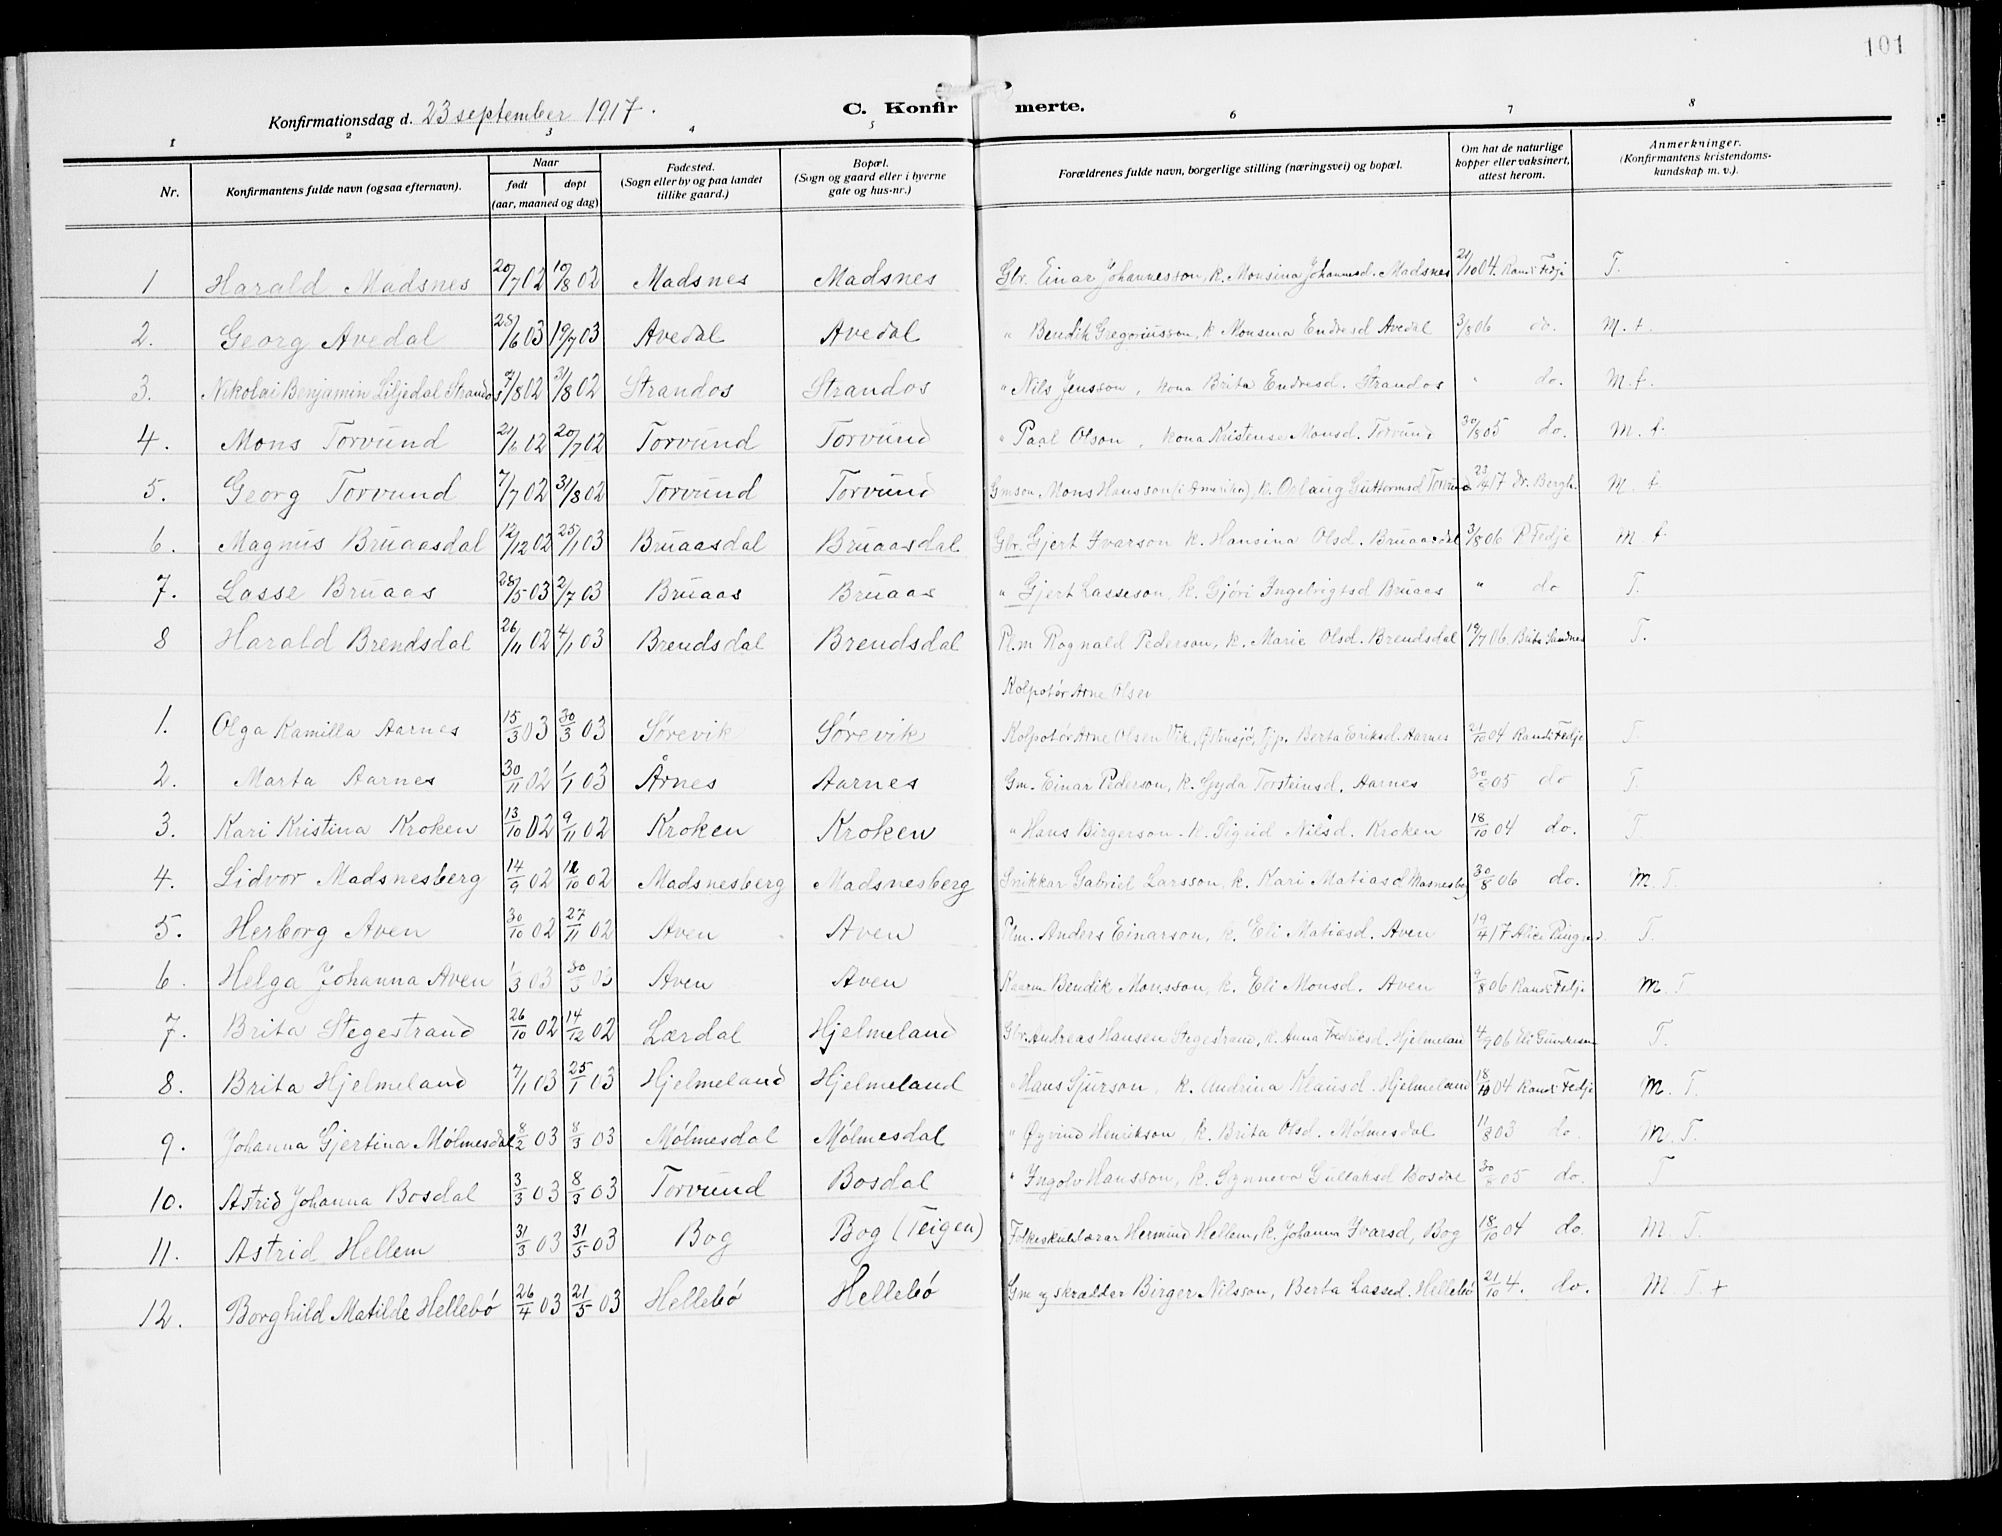 101
Konfirmationsdag d. 23 september 1917.
C. Konfirmerte.
1 2 3 4 5 6 7 8
Nr. | Konfirmantens fulde navn (ogsaa efternavn). | Naar født døpt (aar, maaned og dag) | Fødested. (Sogn eller by og paa landet tillike gaard.) | Bopæl. (Sogn og gaard eller i byerne gate og hus-nr.) | Forældrenes fulde navn, borgerlige stilling (næringsvei) og bopæl. | Om hat de naturlige kopper eller vaksinert, attest herom. | Anmerkninger. (Konfirmantens kristendomskundskap m. v.).
1 Harald Madsnes 20/7 02 10/8 02 Madsnes Madsnes Gbr. Einar Johannesson, k. Monsina Johannesd. Madsnes 21/10 04. Randi Fedje T.
2. Georg Avedal 25/6 03 19/7 03 Avedal Avedal " Bendik Gregoriusson, k. Monsina Endresd Avedal 3/8 06 do. M. t.
3. Nikolai Benjamin Liljedal Strandos 7/8 02 31/8 02 Strandos Strandos " Nils Jensson, kona Brita Endresd. Strandos " do. M. t.
4. Mons Torvund 21/6 02 20/7 02 Torvund Torvund " Paal Olson, kona Kristense Monsd. Torvund 30/8 05 do. M. t.
5. Georg Torvund 7/7 02 31/8 02 Torvund Torvund Gmson. Mons Hansson (i Amerika), k. Oslaug Guttormsd Torvund 23/4 17 Dr. Bergh. M. t
6. Magnus Bruaasdal 12/12 02 25/1 03 Bruaasdal Bruaasdal Gbr. Gjert Ivarson k. Hansina Olsd. Bruaasdal 3/8 06 R Fedje M. t
7. Lasse Bruaas 28/5 03 2/7 03 Bruaas Bruaas " Gjert Lasseson, k. Gjøri Ingebrigtsd Bruaas " do T.
8 Harald Brendsdal 26/11 02 4/1 03 Brendsdal Brendsdal Pl.m Rognald Pederson, k. Marie Olsd. Brendsdal 19/7 06. Brita Sandnes T.
Kolpotør Arne Olsen
1. Olga Kamilla Aarnes 15/3 03 30/3 03 Sørevik Sørevik Kolpotør Arne Olsen Vik, Østensjø, tjp. Berta Eriksd. Aarnes 21/10 04 Randi Fedje T.
2. Marta Aarnes 30/11 02 1/1 03 Årnes Aarnes Gm. Einar Pederson, k. Gyda Torsteinsd. Aarnes 30/8 05 do T.
3. Kari Kristina Kroken 13/10 02 9/11 02 Kroken Kroken " Hans Birgerson k. Sigrid Nilsd. Kroken 18/10 04 do. T.
4. Lidvor Madsnesberg 14/9 02 12/10 02 Madsnesberg Madsnesberg Snikkar Gabriel Larsson, k. Kari Matiasd Masnesberg 30/8 06 do. M. T.
5. Herborg Aven 30/10 02 27/11 02 Aven Aven Plm. Anders Einarson, k. Eli Matiasd. Aven 19/4 17 Alice T.
6. Helga Johanna Aven 1/3 03 30/3 03 Aven Aven Bendik Monsson, k. Eli Monsd. Aven 9/8 06 Randi Fedje M. T
7. Brita Stegestrand 26/10 02 14/12 02 Lærdal Hjelmeland Gbr. Andreas Hansen Stegestrand, k. Anna Fredriksd. Hjelmeland 4/9 06 T.
8. Brita Hjelmeland 7/1 03 25/1 03 Hjelmeland Hjelmeland " Hans Sjurson, k. Andrina Klausd. Hjelmeland 18/10 04 Randi Fedje M. T.
9. Johanna Gjertina Mølmesdal 8/2 03 8/3 03 Mølmesdal Mølmesdal " Øyvind Henrikson, k. Brita Olsd. Mølmesdal 11/8 03 do M. T.
10. Astrid Johanna Bosdal 3/3 03 8/3 03 Torvund Bosdal " Ingolv Hansson, k. Synneva Gullaksd Bosdal 30/8 05 do. T
11. Astrid Hellem 31/3 03 31/5 03 Bog Bog (Teigen) Folkeskulelærar Hermund Hellem, k. Johanna Ivarsd, Bog 18/10 04 do. M T.
12. Borghild Matilde Hellebø 26/4 03 21/5 03 Hellebø Hellebø Gm og skrædder Birger Nilsson, Berta Lassed. Hellebø 21/10 4. do. M. T. +